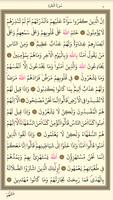 سُورَةُ البَقَرَةِ
إِنَّ الَّذِينَ كَفَرُوا سَوَاءٌ عَلَيْهِمْ ءَأَنْذَرْتَهُمْ أَمْ لَمْ تُنْذِرْهُمْ
لَا يُؤْمِنُونَ خَتَمَ اللَّهُ عَلَىٰ قُلُوبِهِمْ وَعَلَىٰ سَمْعِهِمْ وَعَلَىٰ
أَبْصَارِهِمْ غِشَاوَةٌ وَلَهُمْ عَذَابٌ عَظِيمٌ وَمِنَ النَّاسِ مَنْ يَقُولُ
آمَنَّا بِاللَّهِ وَبِالْيَوْمِ الْآخِرِ وَمَا هُمْ بِمُؤْمِنِينَ يُخَادِعُونَ
اللَّهَ وَالَّذِينَ آمَنُوا وَمَا يَخْدَعُونَ إِلَّا أَنْفُسَهُمْ وَمَا يَشْعُرُونَ
فِي قُلُوبِهِمْ مَرَضٌ فَزَادَهُمُ اللَّهُ مَرَضًا وَلَهُمْ عَذَابٌ أَلِيمٌ
بِمَا كَانُوا يَكْذِبُونَ وَإِذَا قِيلَ لَهُمْ لَا تُفْسِدُوا فِي الْأَرْضِ
قَالُوا إِنَّمَا نَحْنُ مُصْلِحُونَ أَلَا إِنَّهُمْ هُمُ الْمُفْسِدُونَ
وَلَٰكِنْ لَا يَشْعُرُونَ وَإِذَا قِيلَ لَهُمْ آمِنُوا كَمَا آمَنَ
النَّاسُ قَالُوا أَنُؤْمِنُ كَمَا آمَنَ السُّفَهَاءُ أَلَا إِنَّهُمْ هُمُ
السُّفَهَاءُ وَلَٰكِنْ لَا يَعْلَمُونَ وَإِذَا لَقُوا الَّذِينَ آمَنُوا
قَالُوا آمَنَّا وَإِذَا خَلَوْا إِلَىٰ شَيَاطِينِهِمْ قَالُوا إِنَّا مَعَكُمْ
إِنَّمَا نَحْنُ مُسْتَهْزِئُونَ اللَّهُ يَسْتَهْزِئُ بِهِمْ وَيَمُدُّهُمْ
فِي طُغْيَانِهِمْ يَعْمَهُونَ أُولَٰئِكَ الَّذِينَ اشْتَرَوُا الضَّلَالَةَ
بِالْهُدَىٰ فَمَا رَبِحَتْ تِجَارَتُهُمْ وَمَا كَانُوا مُهْتَدِينَ